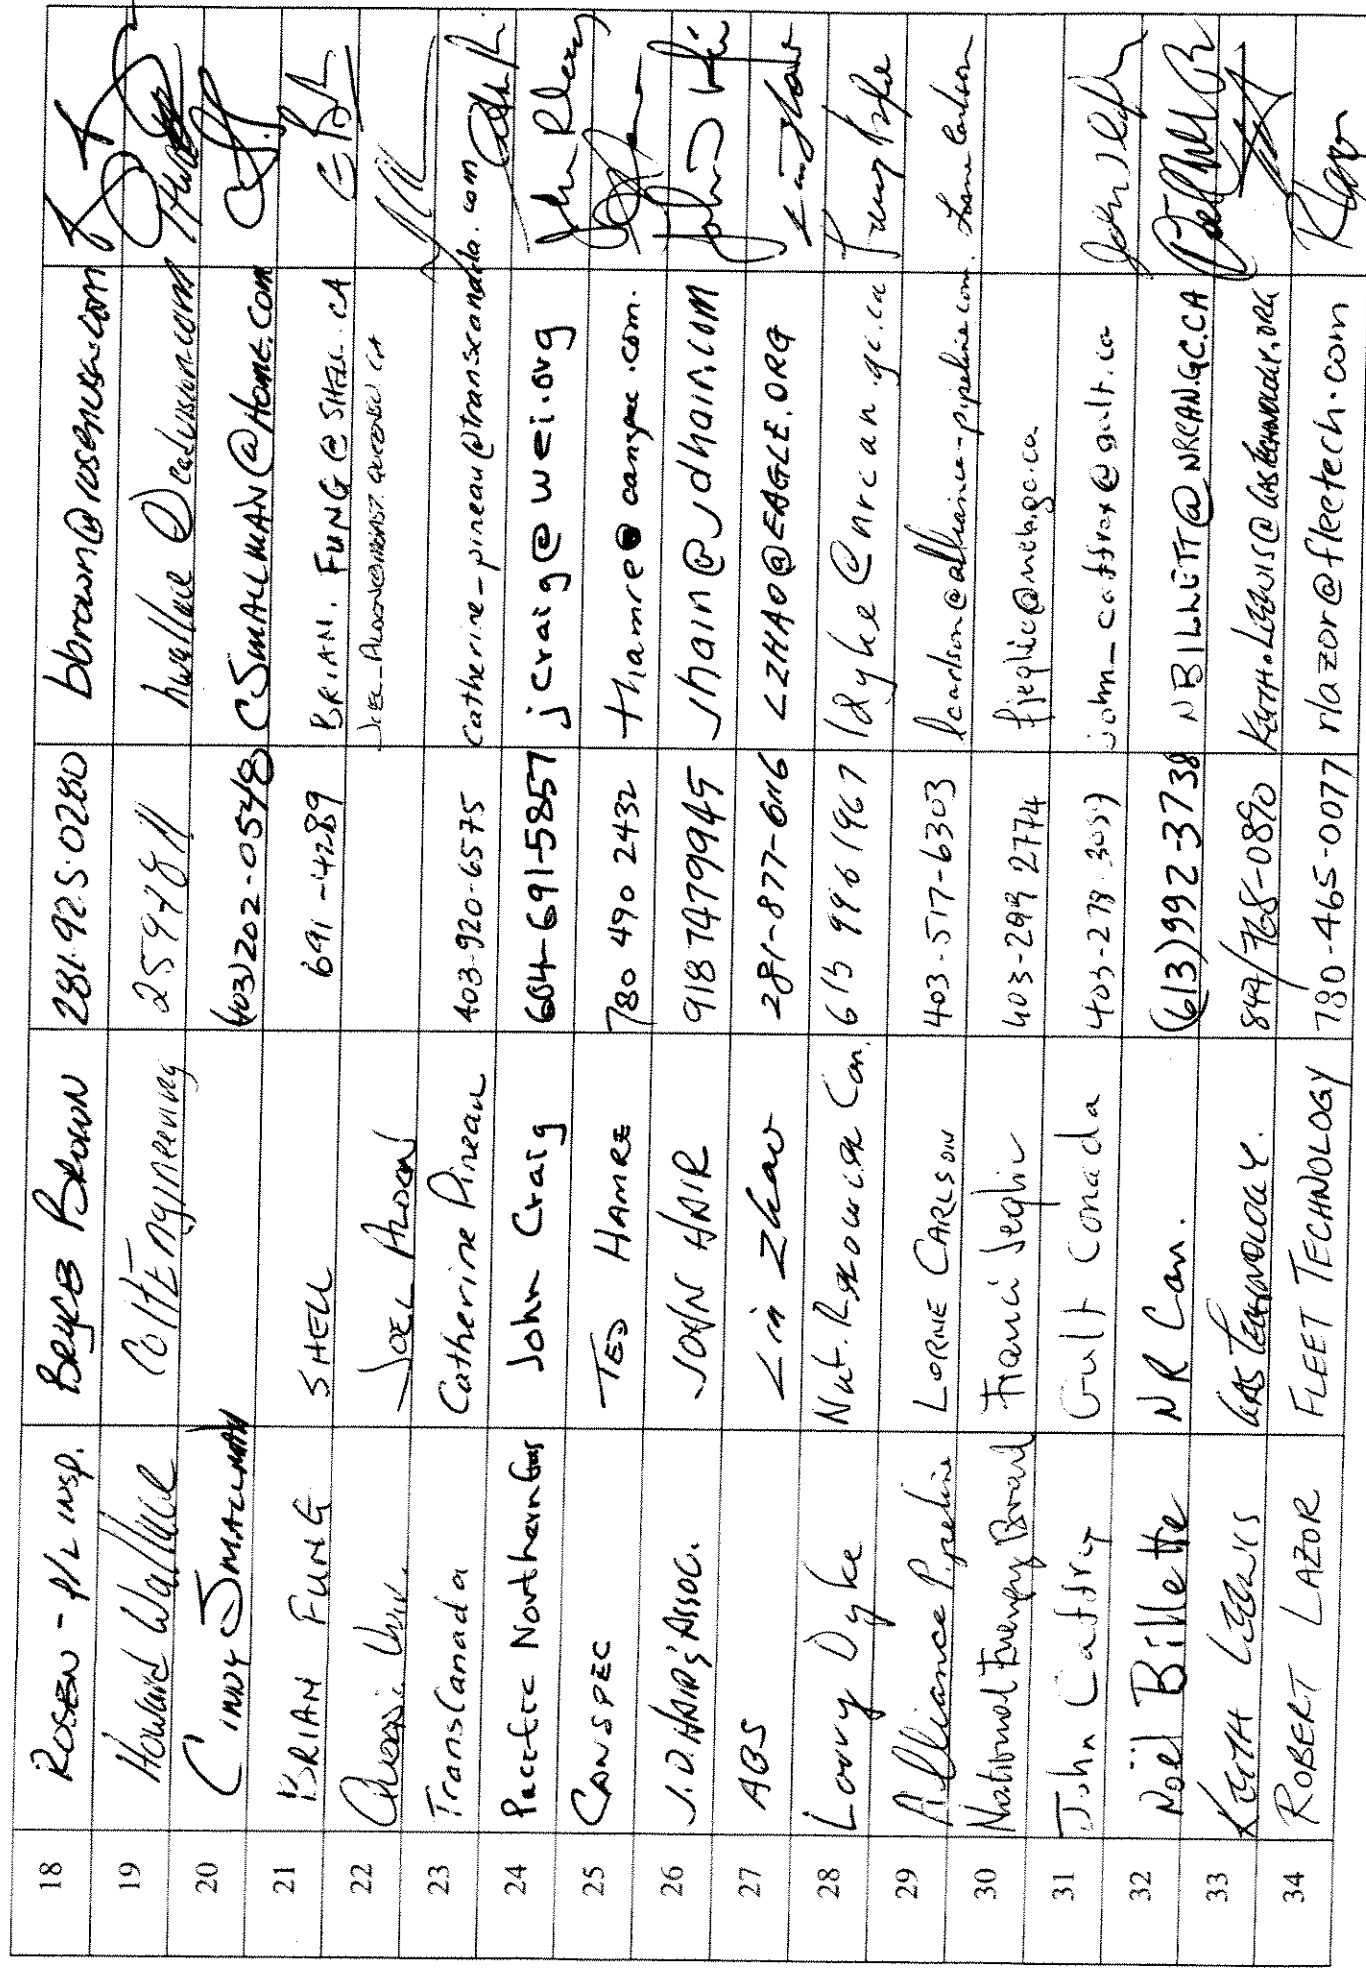 18 ROSEN - P/L INSP. BRYCE BROWN 281.925.0280 bbrown@rosenusa.com
19 Howard Wallace Colt Engineering 2594811
20 CINDY SMALLMAN (403)202-0548 CSMALLMAN@HOME.COM
21 BRIAN FUNG SHELL 691-4289 BRIAN.FUNG@SHELL.CA
22 JOEL
23 TransCanada Catherine Pineau 403-920-6575 catherine_pineau@transcanada.com
24 Pacific Northern Gas John Craig 604-691-5857 jcraig@wei.org
25 CANSPEC TED HAMRE 780 490 2432 thamre@canspec.com.
26 J.D. HAIR & ASSOC. JOHN HAIR 918 7479945 jhain@jdhair.com
27 ABS Lin Zhao 281-877-6116 LZHAO@EAGLE.ORG
28 Larry Dyke Nat. Resources Can. 613 9961967 ldyke@nrcan.gc.ca
29 Alliance Pipeline LORNE CARLSON 403-517-6303 lcarlson@alliance-pipeline.com.
30 National Energy Board Franci Jeglic 403-299 2774 fjeglic@neb.gc.ca
31 John Caffrey Gulf Canada 403-279-3057 john_caffrey@gulf.ca
32 Noël Billette NR Can. (613)992-3738 NBILLETT@NRCAN.GC.CA
33 KEITH LEEWIS GAS TECHNOLOGY. 847/768-0890 KEITH.LEEWIS@GASTECHNOLOGY.ORG
34 ROBERT LAZOR FLEET TECHNOLOGY 780-465-0077 rlazor@fleetech.com